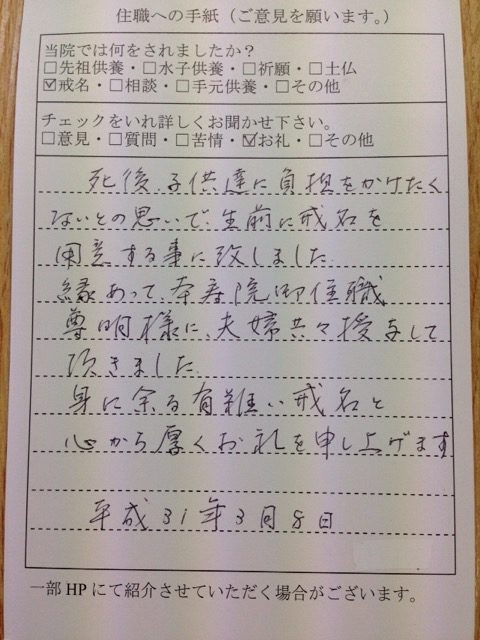 住職への手紙（ご意見を願います。）
当院では何をされましたか？
□先祖供養・□水子供養・□祈願・□土仏
☑戒名・□相談・□手元供養・□その他
チェックをいれ詳しくお聞かせ下さい。
□意見・□質問・□苦情・☑お礼・□その他
死後、子供達に負担をかけたく
ないとの思いで、生前に戒名を
用意する事に致しました。
縁あって、本寿院御住職
尊明様に、夫婦共々授与して
頂きました。
身に余る有難い戒名と
心から厚くお礼を申し上げます
平成31年3月8日
一部HPにて紹介させていただく場合がございます。